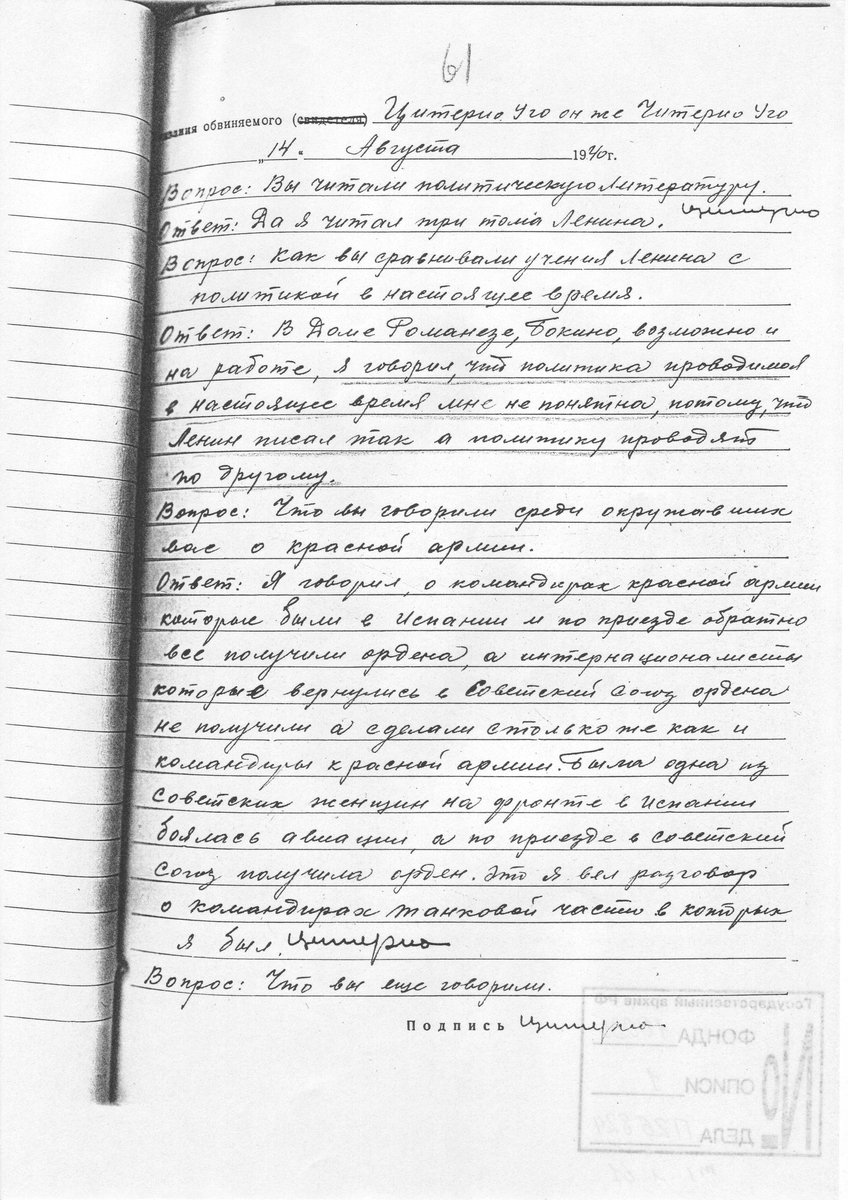 61
обвиняемого (свидетеля) Цитерио Уго он же Читерио Уго
„14“ Августа 1940 г.
Вопрос: Вы читали политическую литературу.
Ответ: Да я читал три тома Ленина. Цитерио
Вопрос: Как вы сравнивали учения Ленина с
политикой в настоящее время.
Ответ: В Доме Романезе, Бокино, возможно и
на работе, я говорил, что политика проводимая
в настоящее время мне не понятна, потому, что
Ленин писал так а политику проводят
по другому.
Вопрос: Что вы говорили среди окружавших
вас о красной армии.
Ответ: Я говорил, о командирах красной армии
которые были в Испании и по приезде обратно
все получили ордена, а интернационалисты
которые вернулись в Советский Союз ордена
не получили а сделали столько же как и
командиры красной армии. Была одна из
советских женщин на фронте в Испании
боялась авиации, а по приезде в Советский
Союз получила орден. Это я вел разговор
о командирах танковой части в котрых
я был. Цитерио
Вопрос: Что вы еще говорили.
Подпись Цитерио
Государственный архив РФ
№
ФОНДА
ОПИСИ 1
ДЕЛА